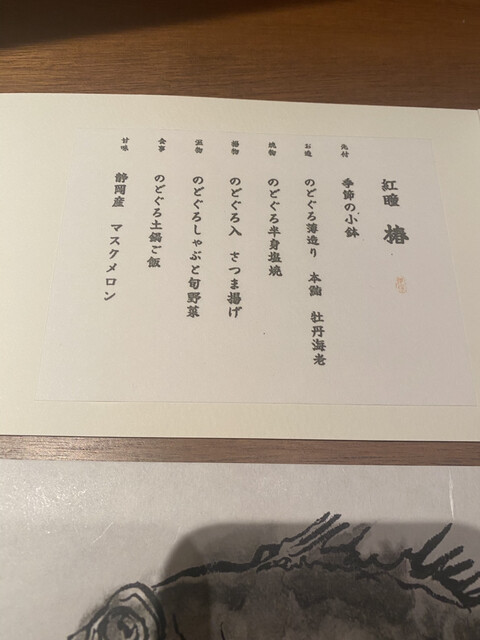 紅瞳 椿
先付 季節の小鉢
お造 のどぐろ薄造り 本鮪 牡丹海老
焼物 のどぐろ半身塩焼
揚物 のどぐろ入 さつま揚げ
温物 のどぐろしゃぶと旬野菜
食事 のどぐろ土鍋ご飯
甘味 静岡産 マスクメロン